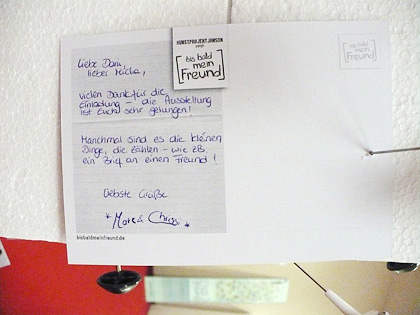 KUNSTPROJEKT JONSON
zeigt
[bis bald
mein
Freund]
[bis bald
mein
Freund]
Liebe Dani,
lieber Micha,
vielen Dank für die
Einladung – die Ausstellung
ist Euch sehr gelungen!
Manchmal sind es die kleinen
Dinge, die zählen – wie zB.
ein Brief an einen Freund!
Liebste Grüße
bisbaldmeinfreund.de